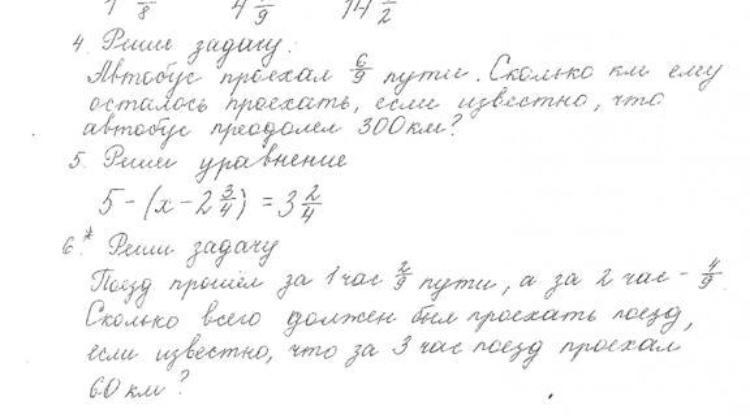 4. Реши задачу.
Автобус проехал 6/9 пути. Сколько км ему
осталось проехать, если известно, что
автобус преодолел 300 км?
5. Реши уравнение
5 - (x - 2 3/4) = 3 2/4
6.* Реши задачу
Поезд прошёл за 1 час 2/9 пути, а за 2 час - 4/9.
Сколько всего должен был проехать поезд,
если известно, что за 3 час поезд проехал
60 км?